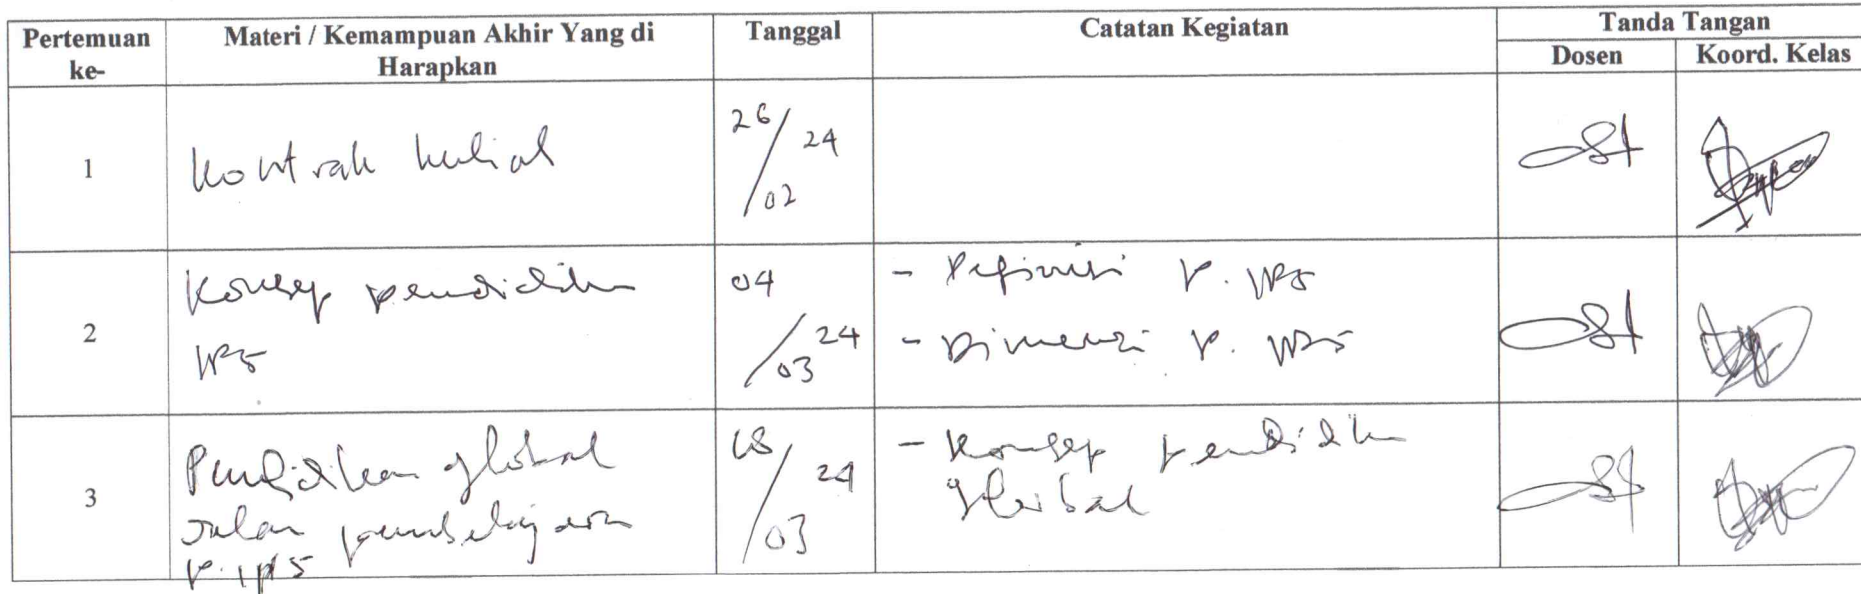 Pertemuan ke- Materi / Kemampuan Akhir Yang di Harapkan Tanggal Catatan Kegiatan Tanda Tangan
Dosen Koord. Kelas
1 Kontrak kuliah 26/02 24
2 Konsep pendidikan IPS 04/03 24
- Definisi P. IPS
- Dimensi P. IPS
3 Pendidikan global dalam pembelajaran P. IPS 18/03 24
- Konsep pendidikan global